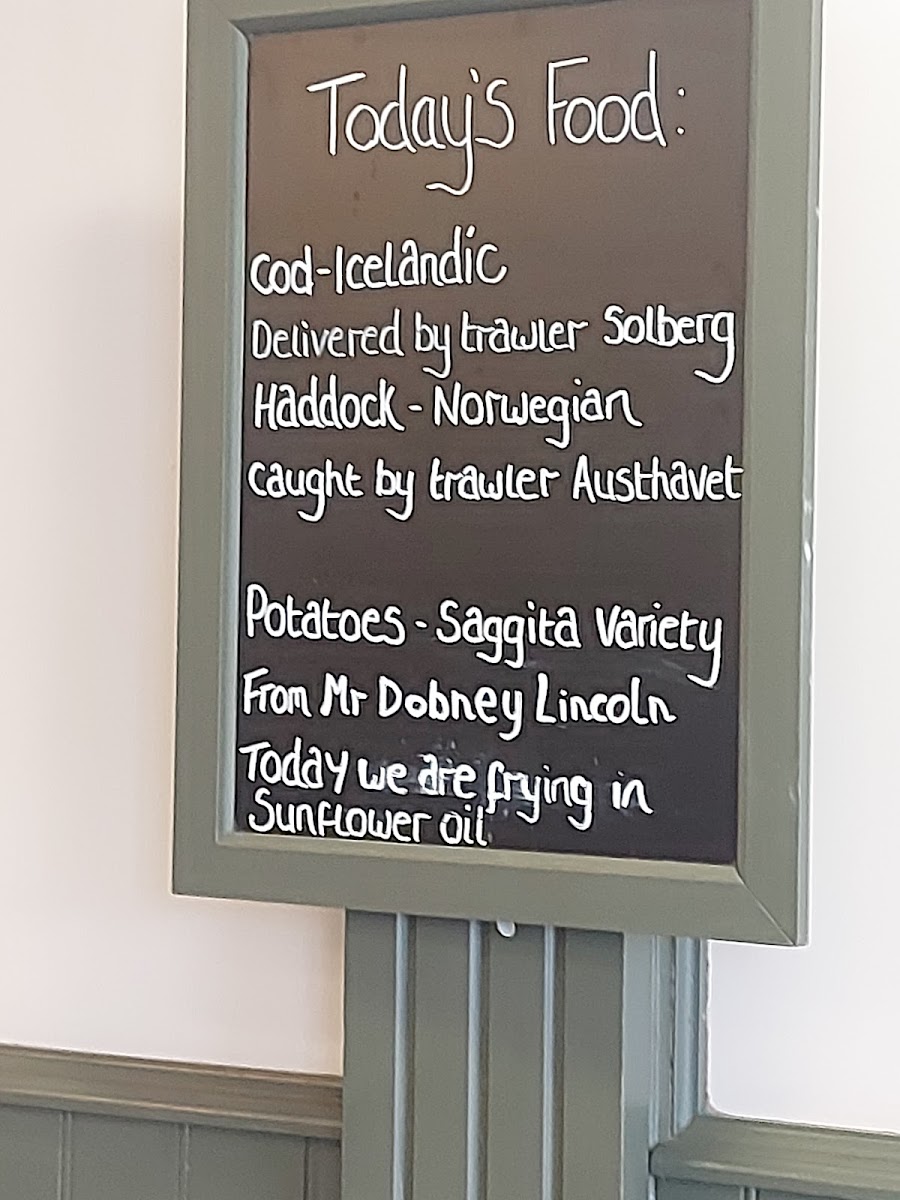 Today's Food:
Cod-Icelandic
Delivered by trawler Solberg
Haddock - Norwegian
caught by trawler Austhavet
Potatoes - Saggita Variety
From Mr Dobney Lincoln
Today we are frying in
Sunflower oil